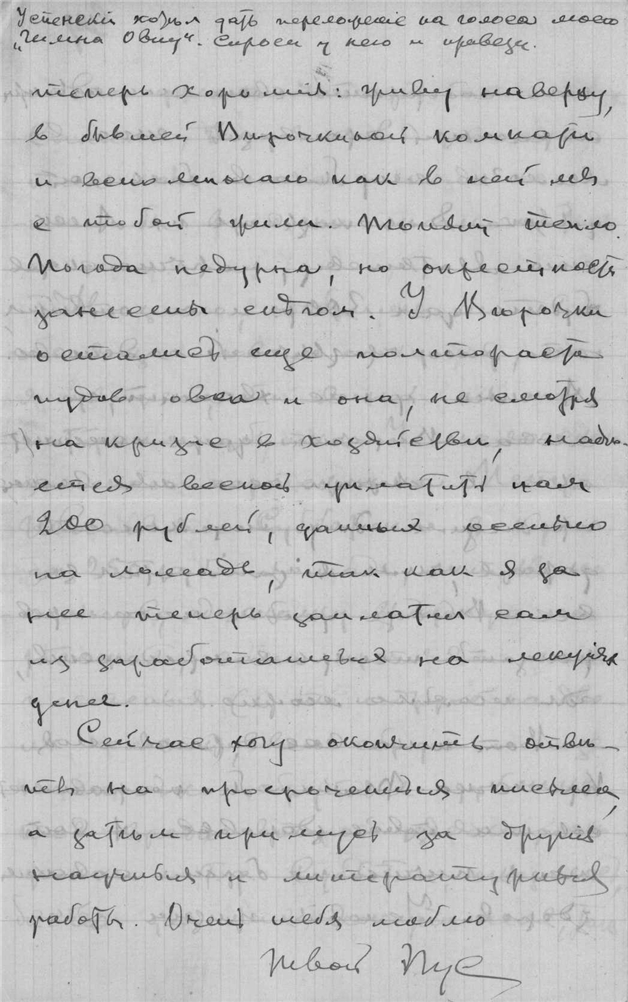 Успенскій хотѣл дать переложение на голоса моего
„Гимна Овму". Спроси у него и привези.
теперь хорошія: живу наверху,
в бывшей Вѣрочкиной комнатѣ
и вспоминаю как в ней мы
с тобой жили. Топят тепло.
Погода недурна, но окрестности
занесены снѣгом. У Вѣрочки
остались еще полтораста
пудов овса и она, не смотря
на кризис в хозяйстве, надѣ-
ется весной уплатить нам
200 рублей, данныя осенью
на лошадь, так как я за
нее теперь заплатил сам
из заработанныя на лекціях
денег.
Сейчас хочу окончить отвѣ-
ты на просроченныя письма,
а затѣм примусь за другія
научныя и литературныя
работы. Очень тебя люблю
Твой